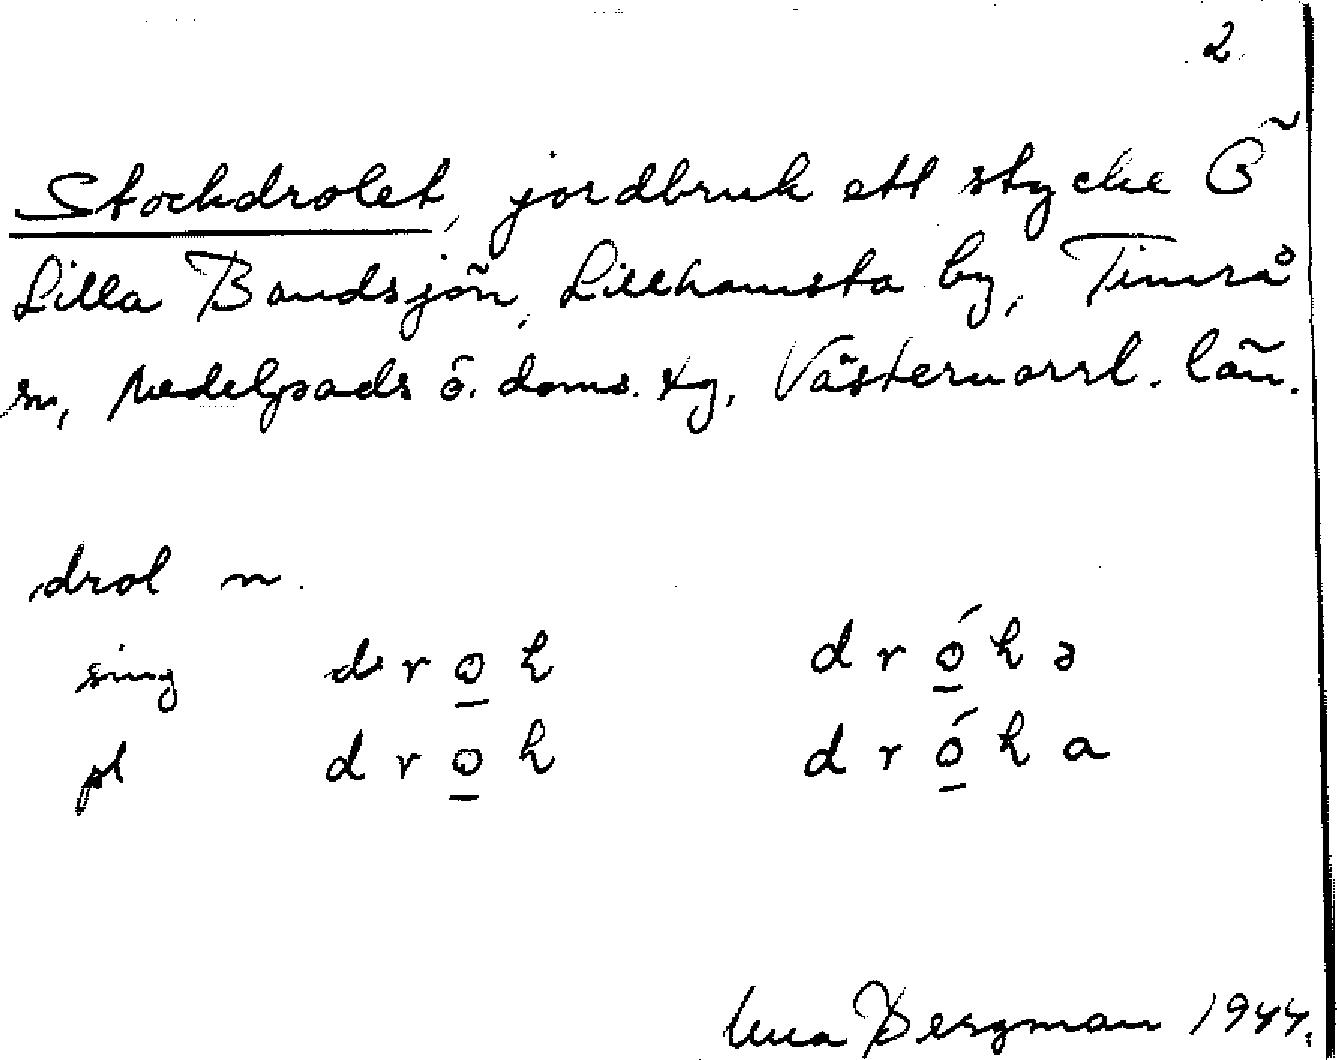 2
Stockdrolet, jordbruk ett stycke Ö
Lilla Bandsjön, Lillhamsta by, Timrå
sn, Medelpads ö. doms. tg, Västernorrl. län.
drol n.
sing d r o̲ h d r ó̲ h ə
pl d r o̲ h d r ó̲ h a
Bergman 1944.